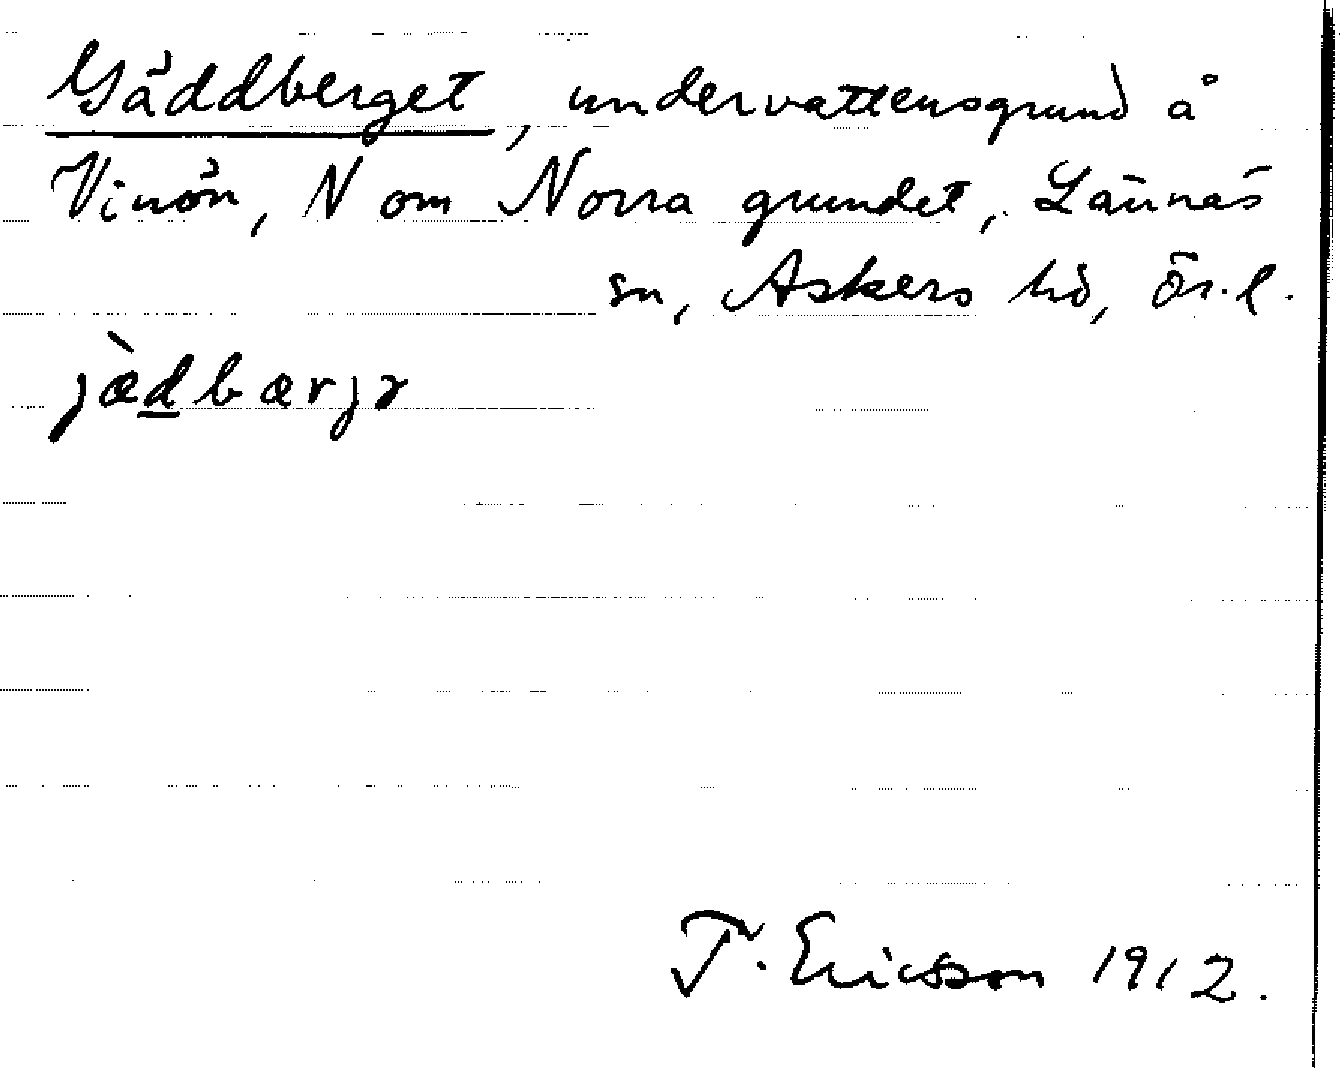 Gäddberget, undervattensgrund å
Vinön, N om Norra grundet, Lännäs
sn, Askers hd, ör.l.
jæ̀dbærjɤ
T. Ericsson 1912.